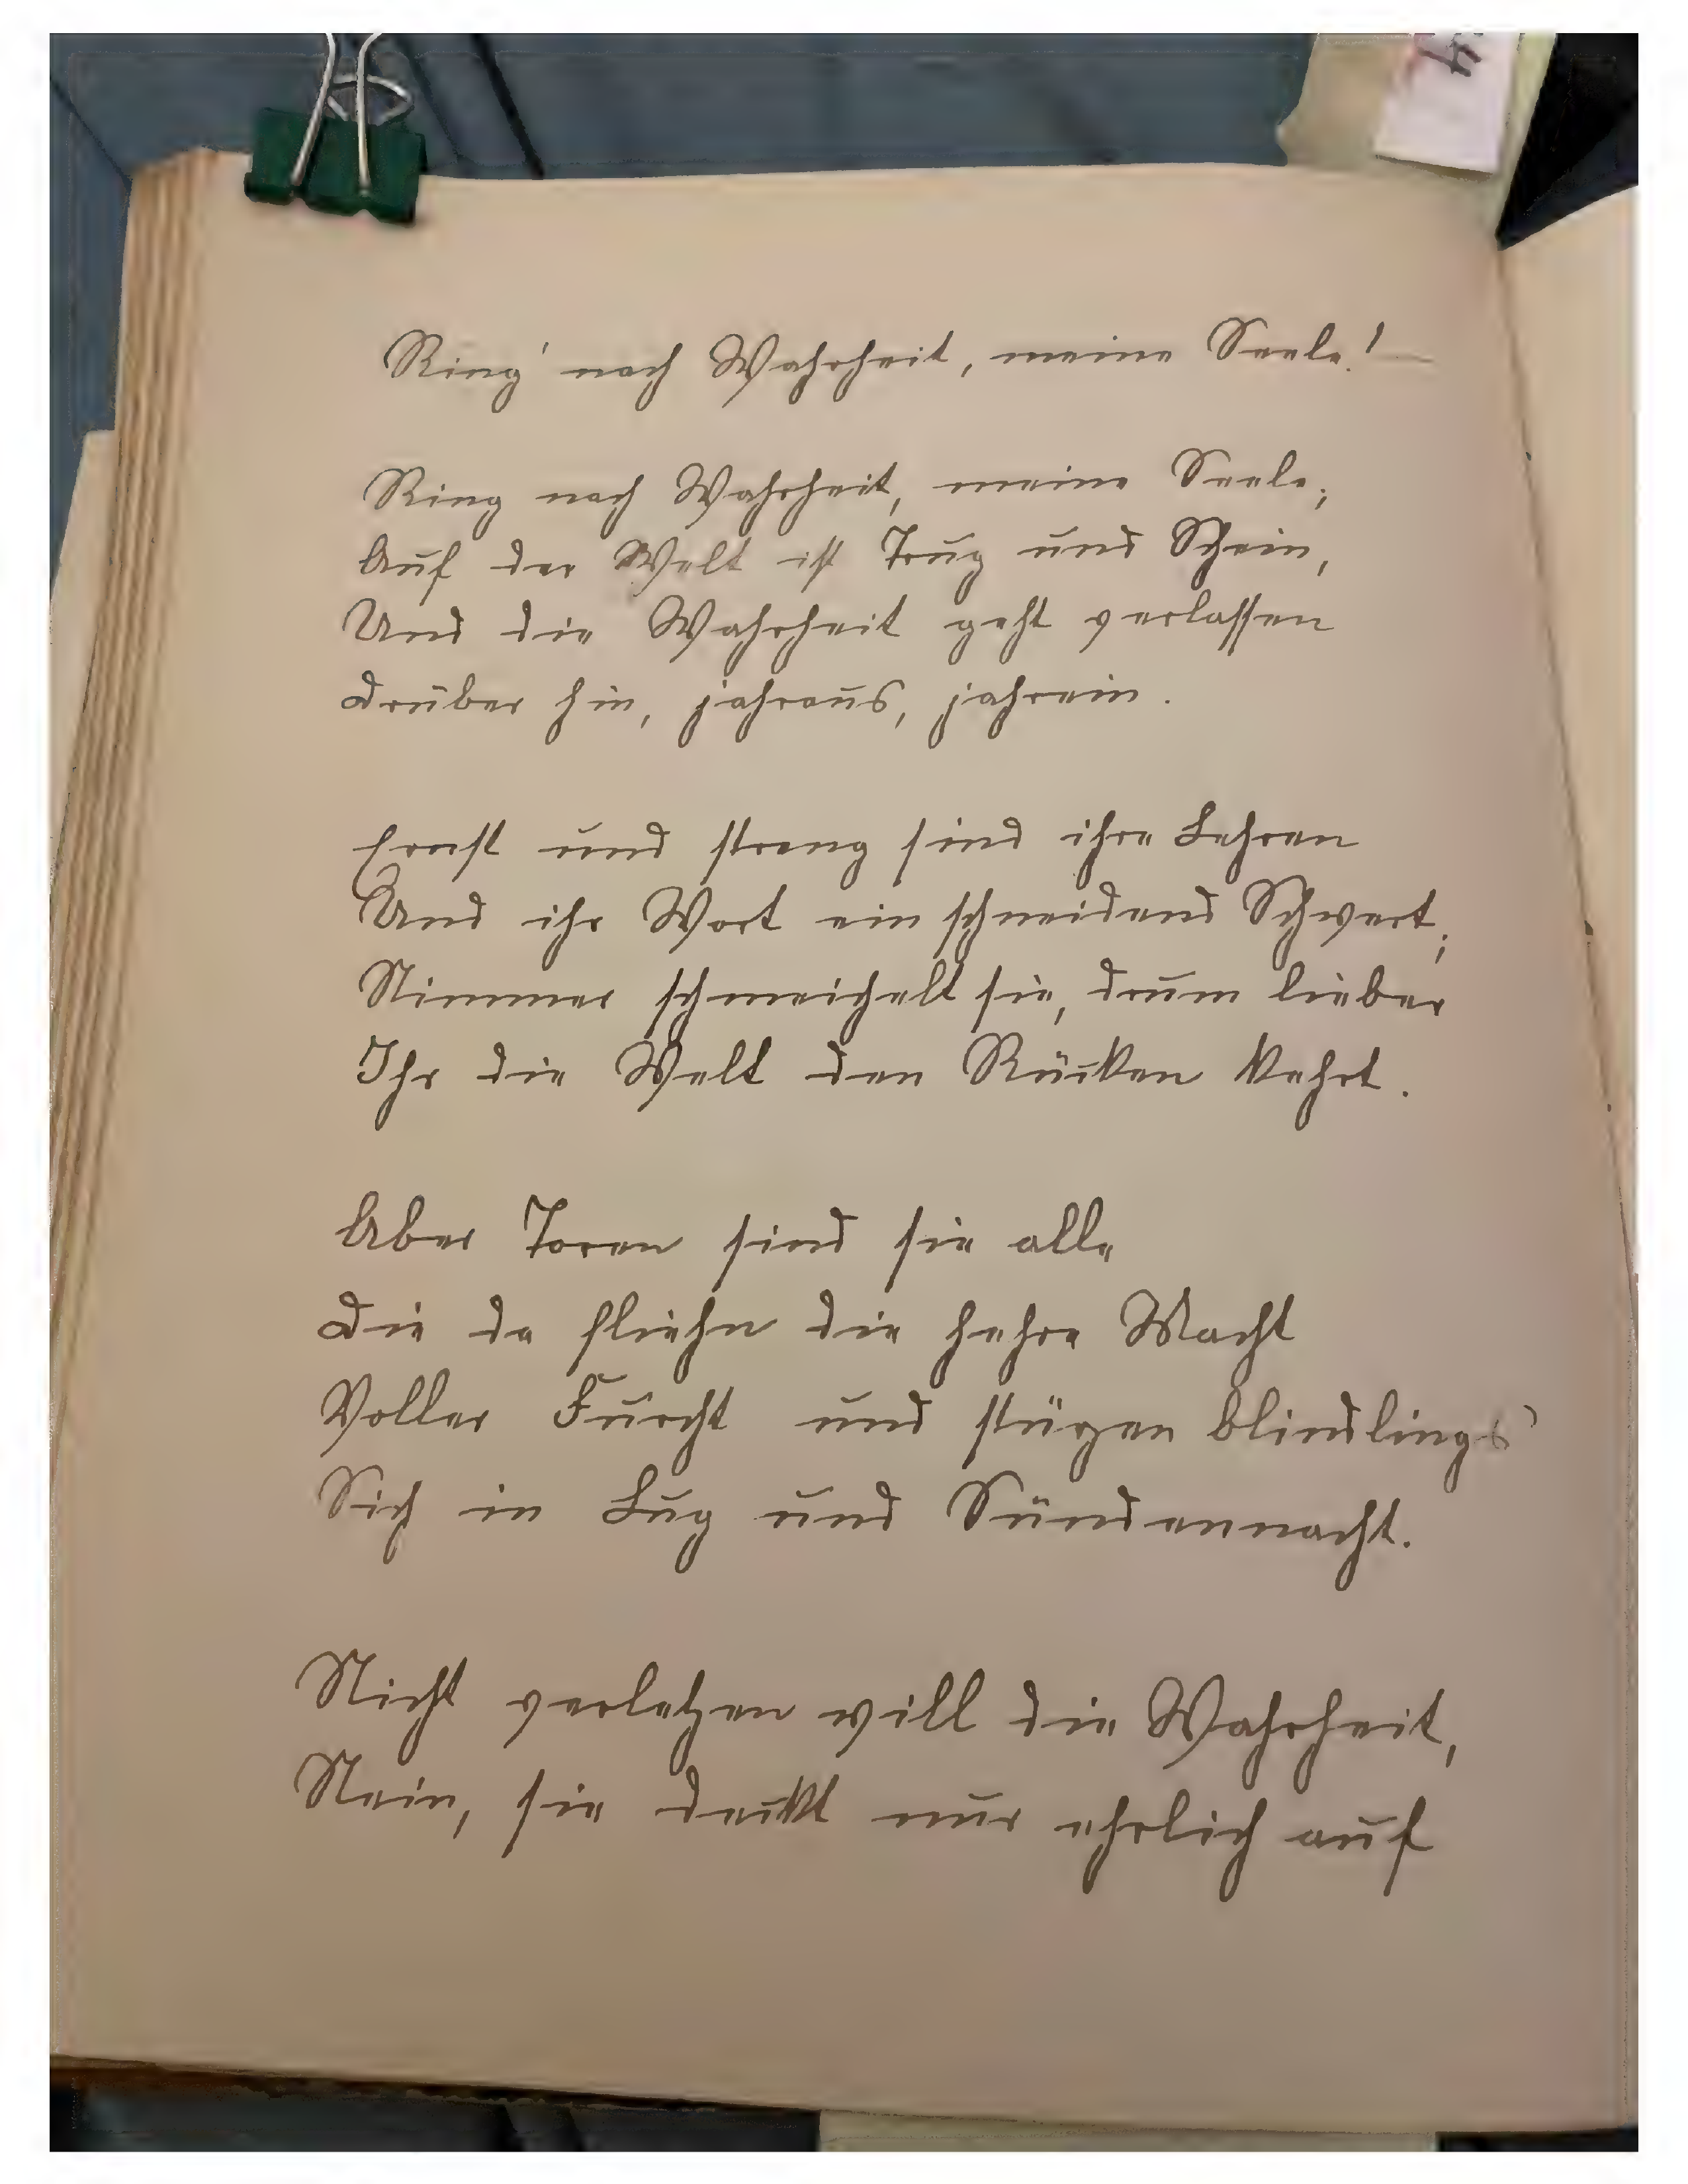 Ring' nach Wahrheit, meine Seele!
Ring nach Wahrheit, meine Seele;
Auf der Welt ist Trug und Schein,
Und die Wahrheit geht verlassen
Drüber hin, jahraus, jahrein.
Ernst und streng sind ihre Lehren
Und ihr Wort ein schneidend Schwert;
Nimmer schmeichelt sie, drum lieber
Ihr die Welt den Rücken kehrt.
Aber Toren sind sie alle
Die da fliehn die hehre Macht
Voller Furcht und stüzen blindlings
Sich in Lug und Sündennacht.
Nicht verletzen will die Wahrheit,
Nein, sie deckt nur ehrlich auf